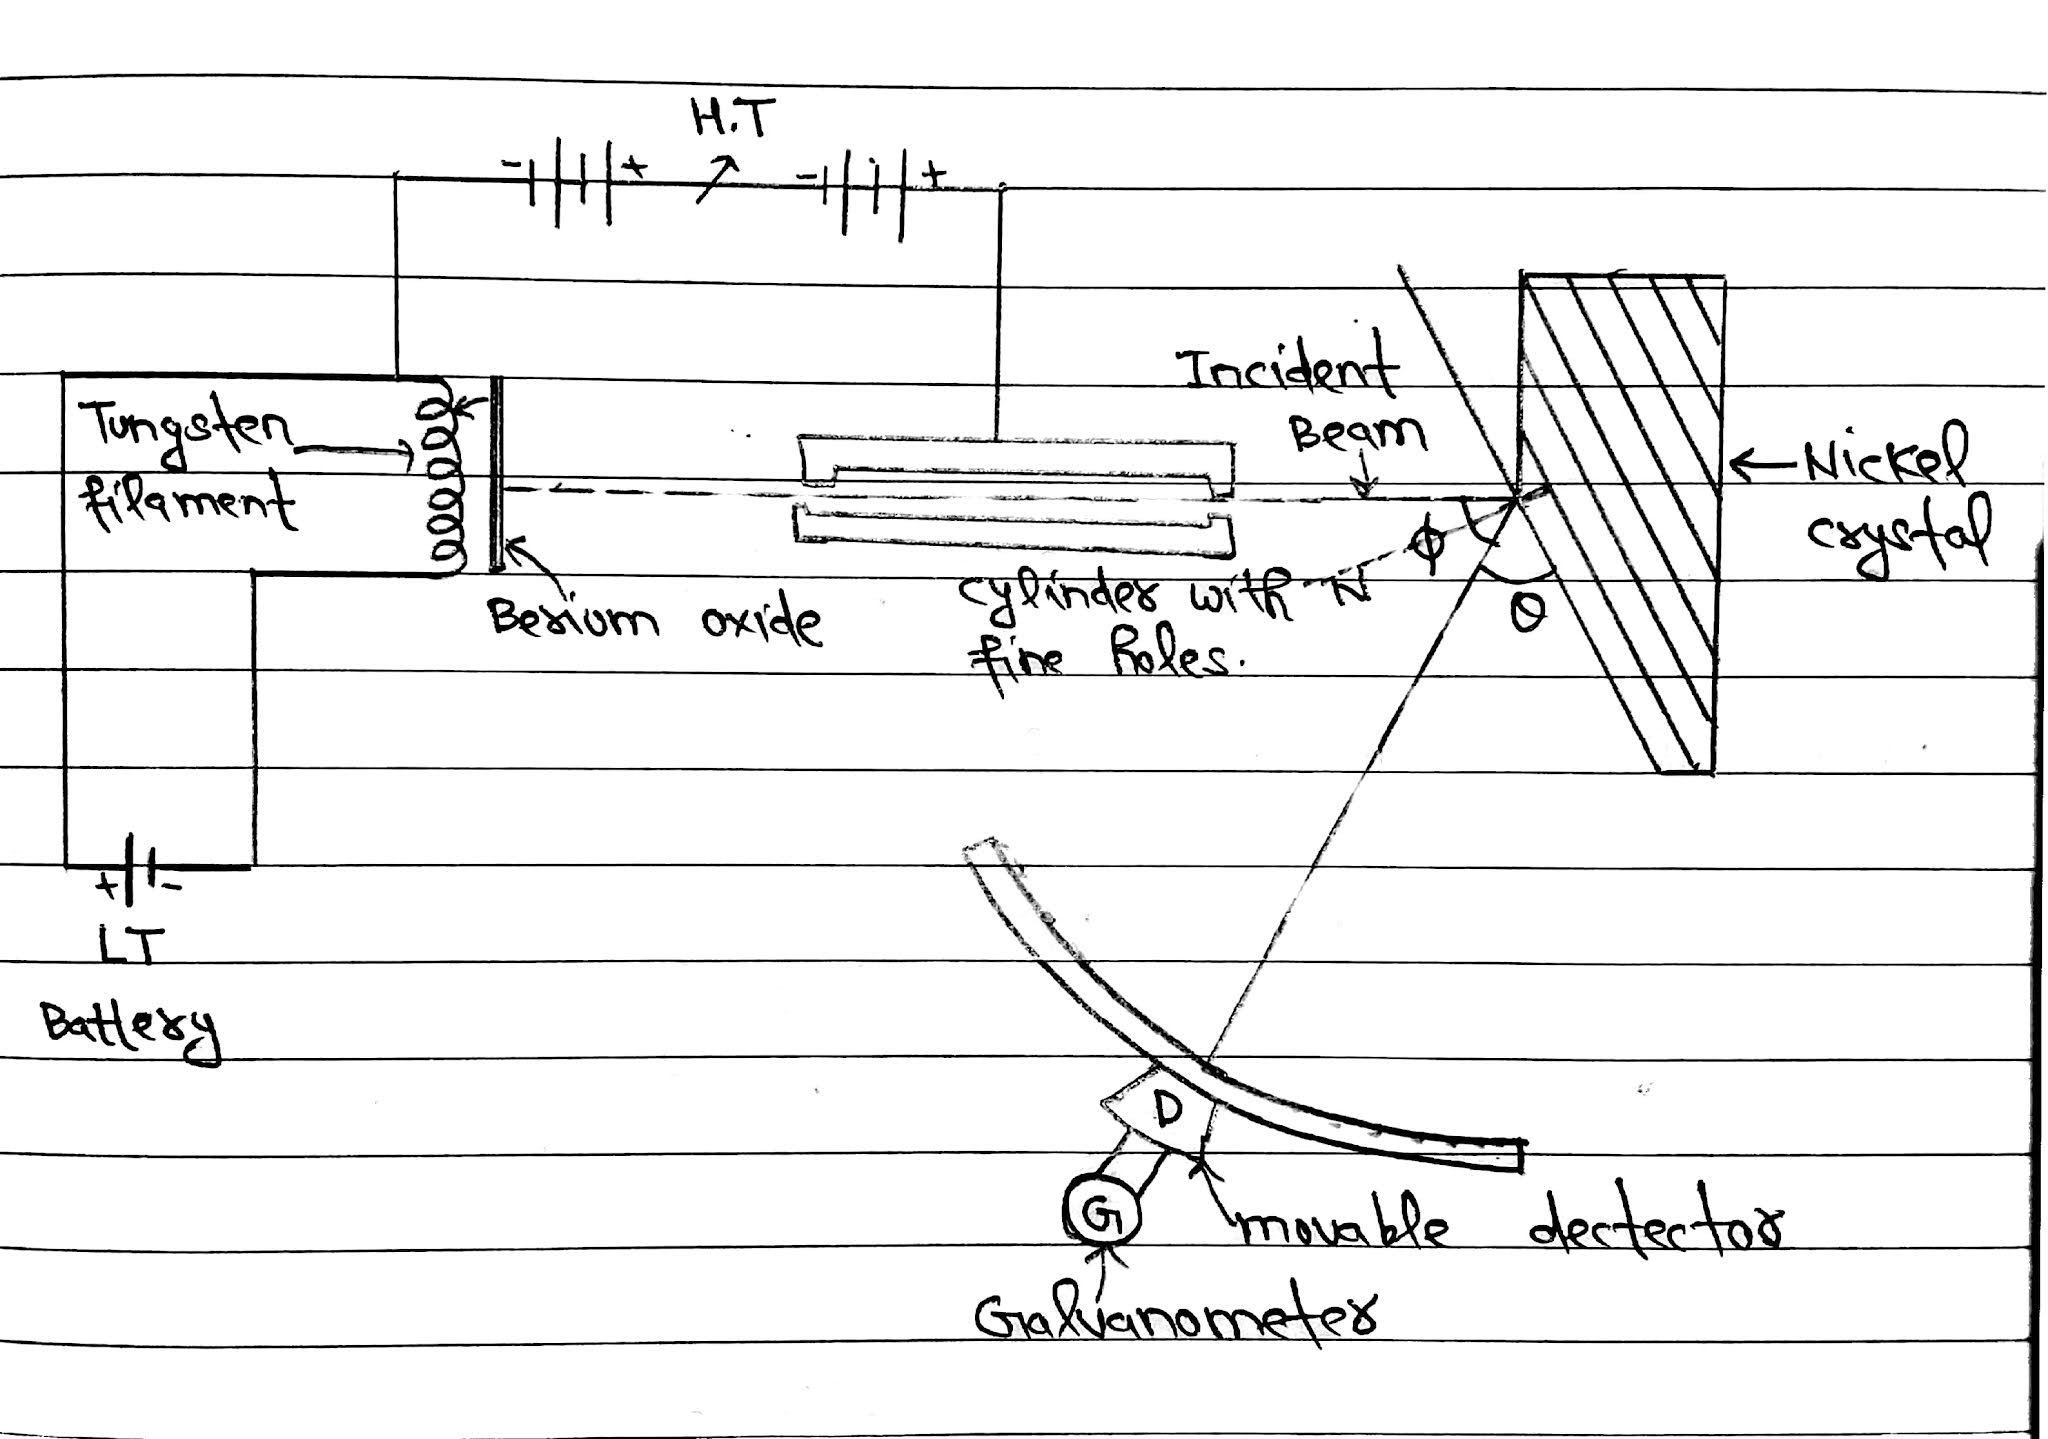 H.T
- + - +
Incident
Beam
Tungsten
filament
Nickel
crystal
ϕ
N
θ
Berium oxide
cylinder with
fine holes.
+ -
LT
Battery
D
G
movable dectector
Galvanometer